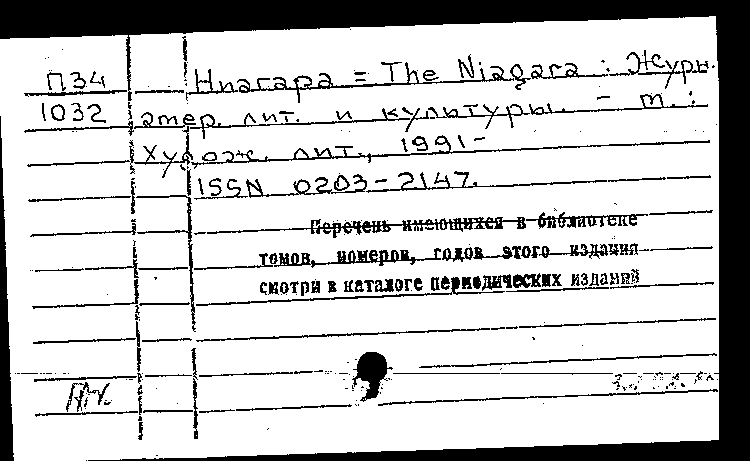 П34 Ниагара = The Niagara : Журн.
1032 амер. лит. и культуры. - М. :
Худож. лит., 1991-
ISSN 0203-2147.
Перечень имеющихся в библиотеке
томов, номеров, годов этого издания
смотри в каталоге периодических изданий